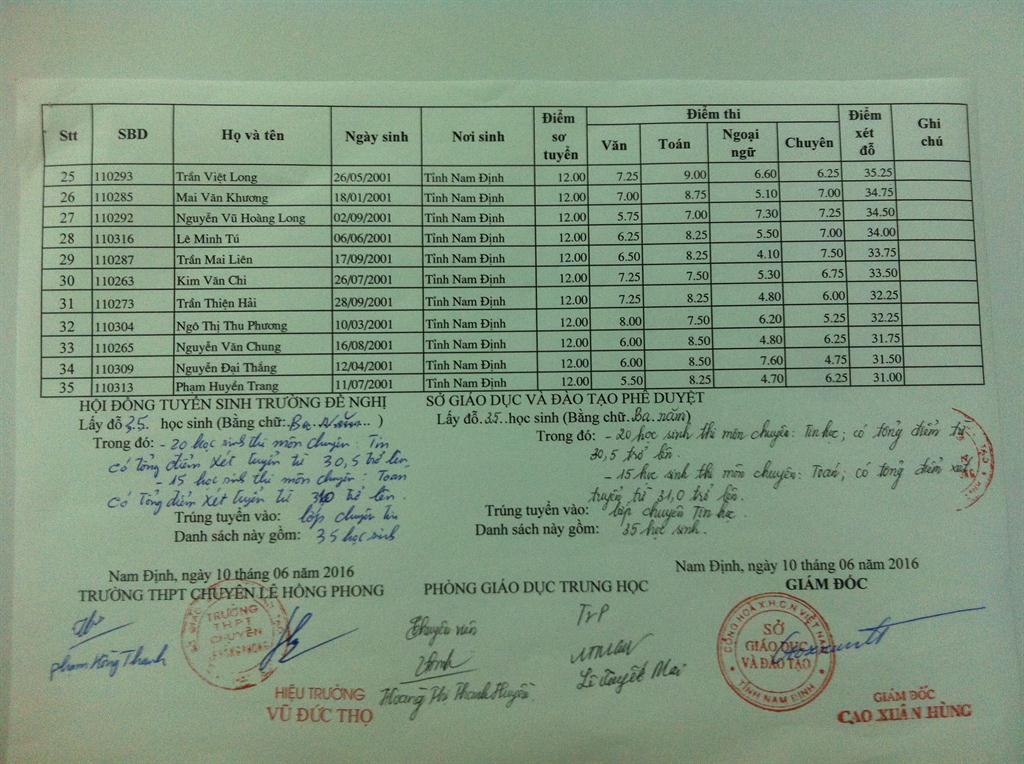 Stt SBD Họ và tên Ngày sinh Nơi sinh Điểm sơ tuyển Điểm thi Điểm xét đỗ Ghi chú
Văn Toán Ngoại ngữ Chuyên
25 110293 Trần Việt Long 26/05/2001 Tỉnh Nam Định 12.00 7.25 9.00 6.60 6.25 35.25
26 110285 Mai Văn Khương 18/01/2001 Tỉnh Nam Định 12.00 7.00 8.75 5.10 7.00 34.75
27 110292 Nguyễn Vũ Hoàng Long 02/09/2001 Tỉnh Nam Định 12.00 5.75 7.00 7.30 7.25 34.50
28 110316 Lê Minh Tú 06/06/2001 Tỉnh Nam Định 12.00 6.25 8.25 5.50 7.00 34.00
29 110287 Trần Mai Liên 17/09/2001 Tỉnh Nam Định 12.00 6.50 8.25 4.10 7.50 33.75
30 110263 Kim Văn Chi 26/07/2001 Tỉnh Nam Định 12.00 7.25 7.50 5.30 6.75 33.50
31 110273 Trần Thiện Hải 28/09/2001 Tỉnh Nam Định 12.00 7.25 8.25 4.80 6.00 32.25
32 110304 Ngô Thị Thu Phương 10/03/2001 Tỉnh Nam Định 12.00 8.00 7.50 6.20 5.25 32.25
33 110265 Nguyễn Văn Chung 16/08/2001 Tỉnh Nam Định 12.00 6.00 8.50 4.80 6.25 31.75
34 110309 Nguyễn Đại Thắng 12/04/2001 Tỉnh Nam Định 12.00 6.00 8.50 7.60 4.75 31.50
35 110313 Phạm Huyền Trang 11/07/2001 Tỉnh Nam Định 12.00 5.50 8.25 4.70 6.25 31.00
HỘI ĐỒNG TUYỂN SINH TRƯỜNG ĐỀ NGHỊ
Lấy đỗ 35 học sinh (Bằng chữ: Ba năm)
Trong đó: - 20 học sinh thi môn chuyên: Tin
có tổng điểm xét tuyển từ 30,5 trở lên
- 15 học sinh thi môn chuyên: Toán
có tổng điểm xét tuyển từ 31,0 trở lên.
Trúng tuyển vào: lớp chuyên Tin
Danh sách này gồm: 35 học sinh
SỞ GIÁO DỤC VÀ ĐÀO TẠO PHÊ DUYỆT
Lấy đỗ 35 học sinh (Bằng chữ: Ba năm)
Trong đó: - 20 học sinh thi môn chuyên: Tin học; có tổng điểm từ
30,5 trở lên.
- 15 học sinh thi môn chuyên: Toán; có tổng điểm xét
tuyển từ 31,0 trở lên.
Trúng tuyển vào: lớp chuyên Tin học.
Danh sách này gồm: 35 học sinh.
Nam Định, ngày 10 tháng 06 năm 2016
TRƯỜNG THPT CHUYÊN LÊ HỒNG PHONG
Phạm Hồng Thanh
TRƯỜNG
THPT
CHUYÊN
HIỆU TRƯỞNG
VŨ ĐỨC THỌ
PHÒNG GIÁO DỤC TRUNG HỌC
Chuyên viên
Hoàng Thị Thanh Huyền
TrP
Lê Tuyết Mai
Nam Định, ngày 10 tháng 06 năm 2016
GIÁM ĐỐC
CỘNG HOÀ X.H.C.N VIỆT NAM
SỞ
GIÁO DỤC
VÀ ĐÀO TẠO
TỈNH NAM ĐỊNH
GIÁM ĐỐC
CAO XUÂN HÙNG